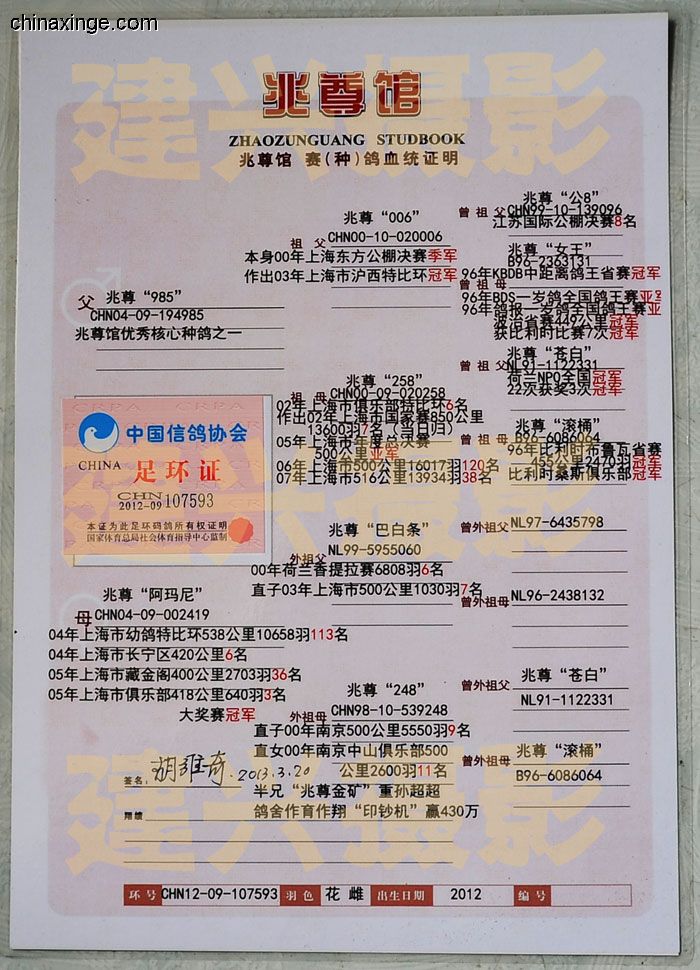 chinaxinge.com
建兴摄影
兆尊馆
ZHAOZUNGUANG STUDBOOK
兆尊馆 赛(种)鸽血统证明
父 兆尊“985”
CHN04-09-194985
兆尊馆优秀核心种鸽之一
祖 父 兆尊“006”
CHN00-10-020006
本身00年上海东方公棚决赛季军
作出03年上海市沪西特比环冠军
曾 祖 父 兆尊“公8”
CHN99-10-139096
江苏国际公棚决赛8名
曾 祖 母 兆尊“女王”
B96-2363131
96年KBDB中距离鸽王省赛冠军
96年BDS一岁鸽全国鸽王赛亚军
96年鸽报一岁鸽全国鸽王赛亚
波治省赛449公里冠军
获比利时比赛7次冠军
祖 母 兆尊“258”
CHN00-09-020258
02年上海市俱乐部特比环6名
作出02年上海市国家赛850公里
13600羽7名（当日归）
05年上海市年度总决赛
500公里亚军
06年上海市500公里16017羽120名
07年上海市516公里13934羽38名
曾 祖 父 兆尊“苍白”
NL91-1122331
荷兰NPO全国冠军
22次获奖3次冠军
曾 祖 母 兆尊“滚桶”
B96-6086064
96年比利时布鲁瓦省赛
455公里2470羽冠军
比利时桑斯俱乐部冠军
中国信鸽协会
CHINA 足环证
CHN
2012-09 107593
本证为此足环码鸽所有权证明
国家体育总局社会体育指导中心监制
建兴摄影
母 兆尊“阿玛尼”
CHN04-09-002419
04年上海市幼鸽特比环538公里10658羽113名
04年上海市长宁区420公里6名
05年上海市藏金阁400公里2703羽36名
05年上海市俱乐部418公里640羽3名
大奖赛冠军
外祖父 兆尊“巴白条”
NL99-5955060
00年荷兰香提拉赛6808羽6名
直子03年上海市500公里1030羽7名
曾外祖父 NL97-6435798
曾外祖母 NL96-2438132
外祖母 兆尊“248”
CHN98-10-539248
直子00年南京500公里5550羽9名
直女00年南京中山俱乐部500
公里2600羽11名
半兄“兆尊金矿”重孙超超
鸽舍作育作翔“印钞机”赢430万
曾外祖父 兆尊“苍白”
NL91-1122331
曾外祖母 兆尊“滚桶”
B96-6086064
签名: 胡维奇 .2013.3.20
翔绩
建兴摄影
环 号 CHN12-09-107593 羽 色 花 雌 出生日期 2012 编 号